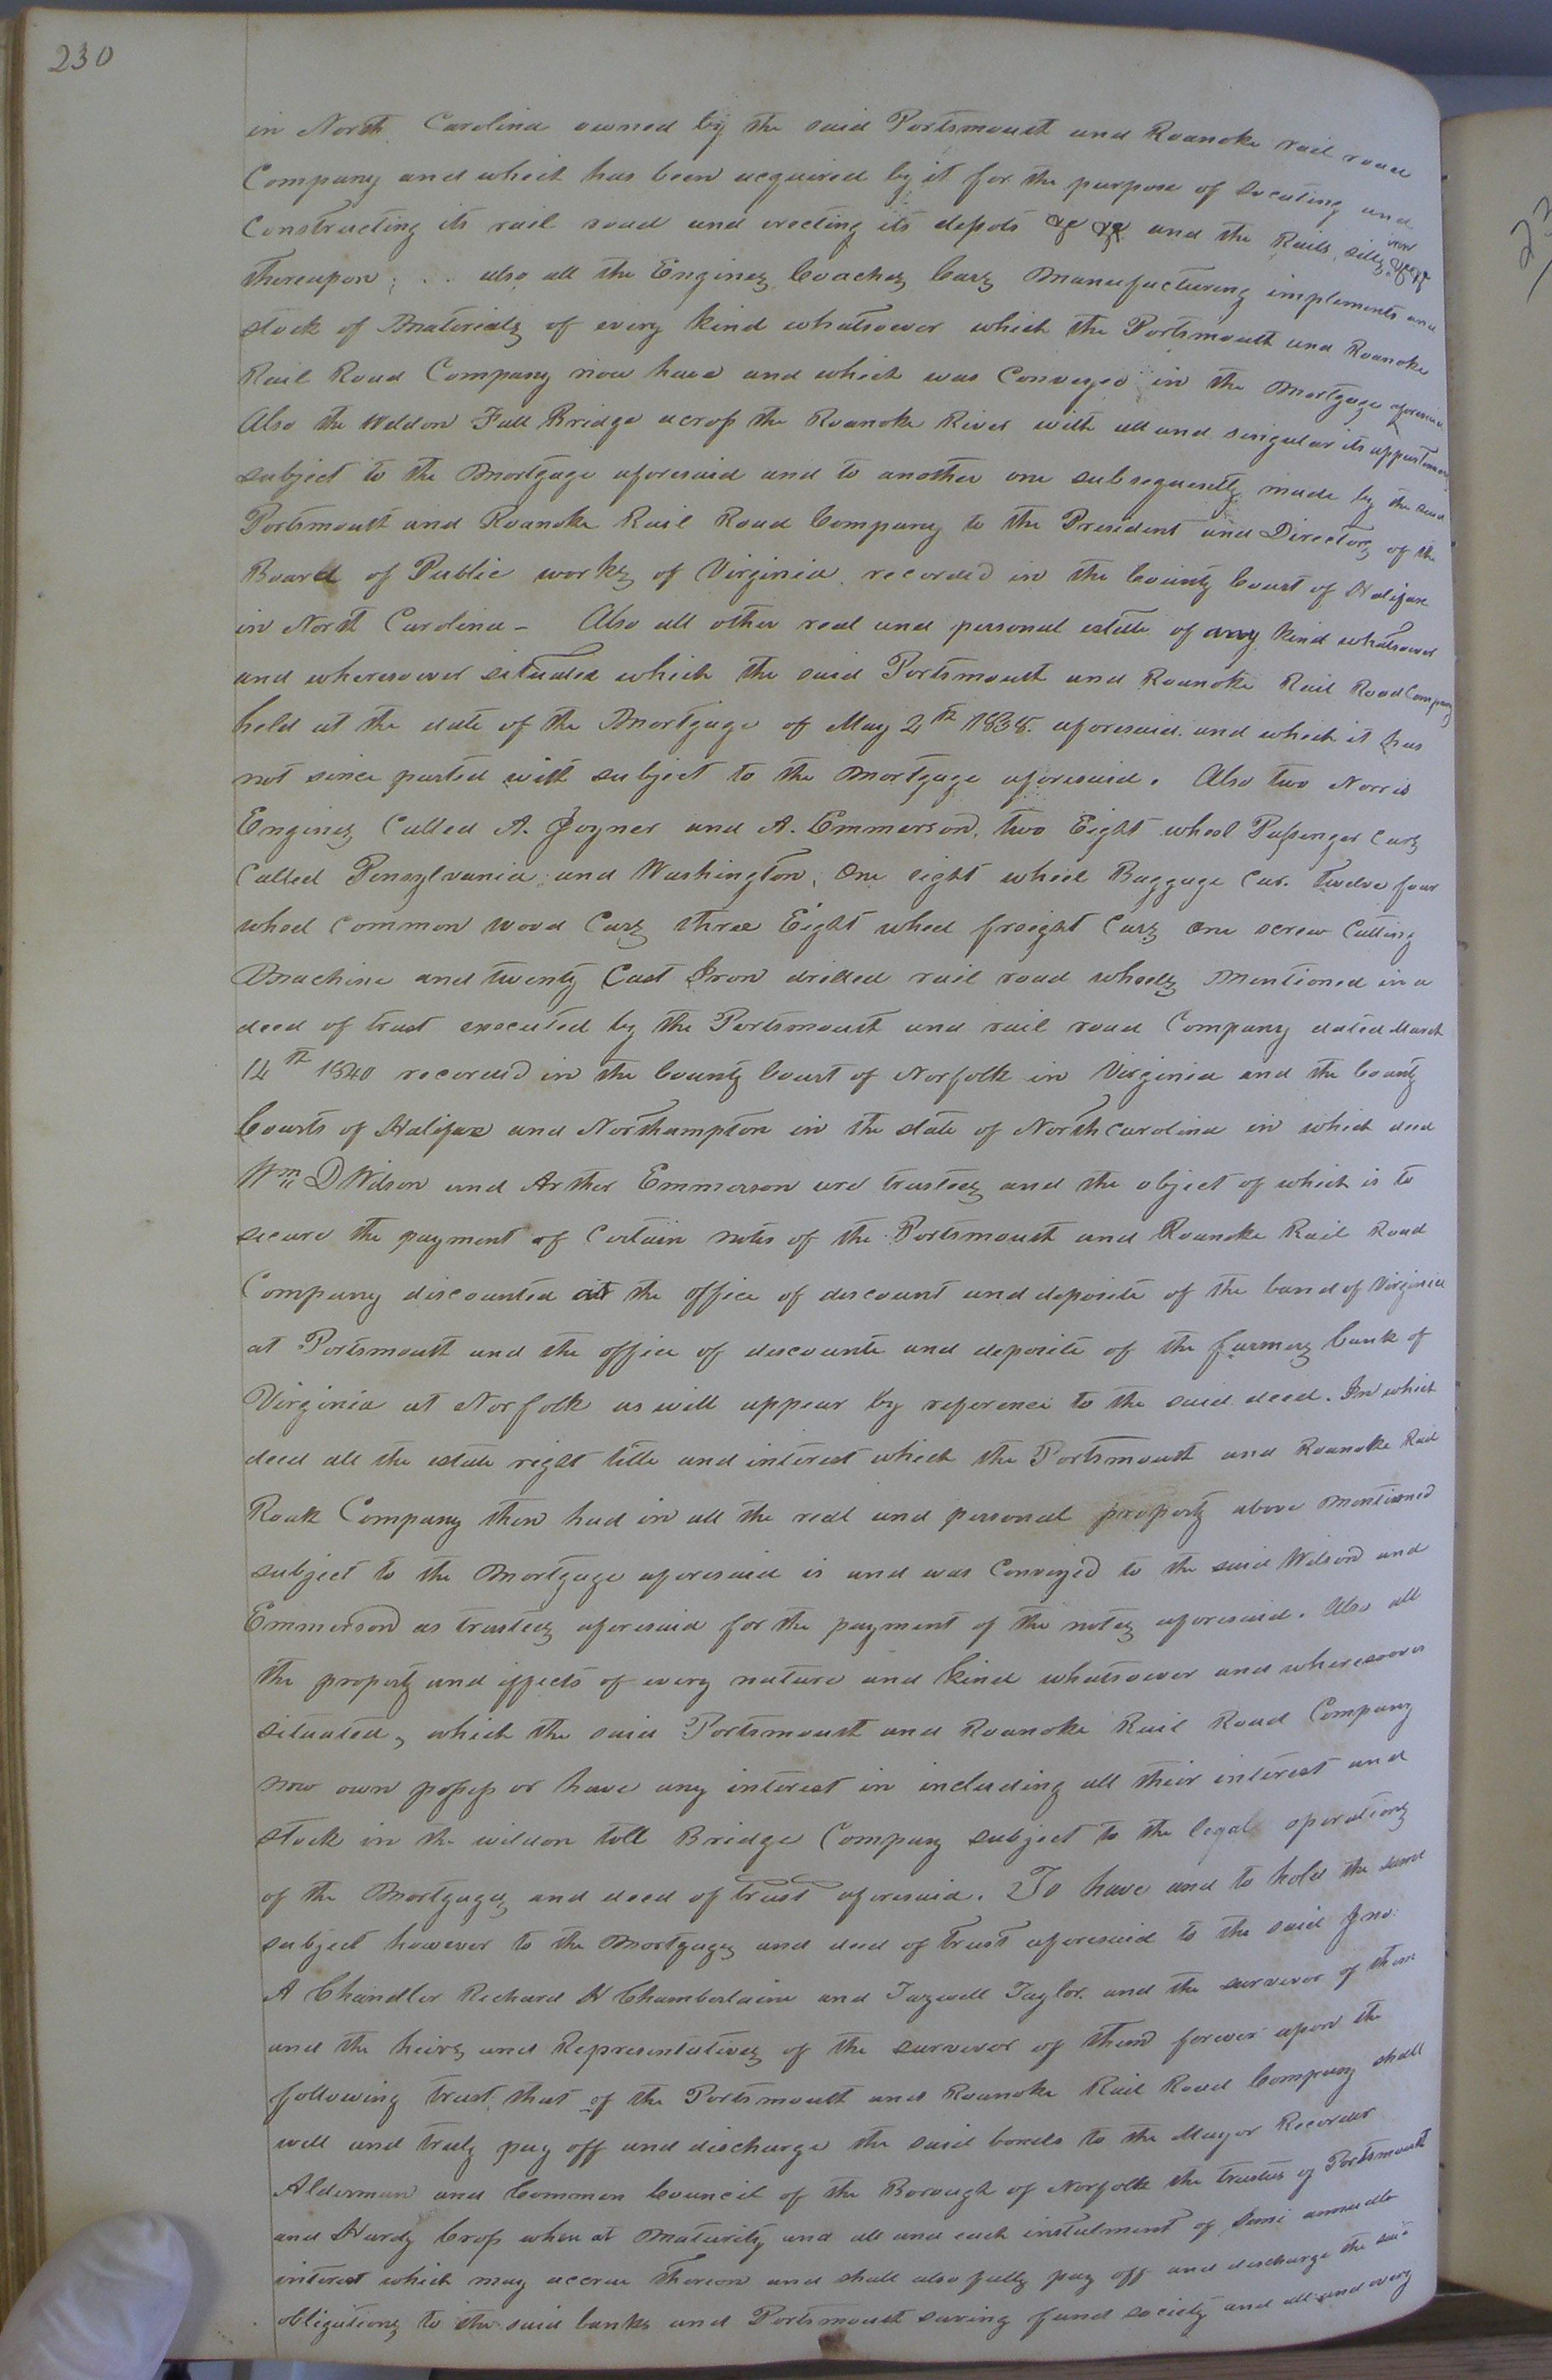 230
in North Carolina owned by the said Portsmouth and Roanoke rail road
Company and which has been acquired by it for the purpose of locating and
Constructing its rail road and erecting its depots &c &c and the Rails, sills, iron &c &c
thereupon; . . also all the Engines, Coaches, Cars Manufacturing implements and
stock of Materials of every kind whatsoever which the Portsmouth and Roanoke
Rail Road Company now have and which was Conveyed in the Mortgage aforesaid
Also the Weldon Fall Bridge across the Roanoke River with all and singular its appurtenances
subject to the Mortgage aforesaid and to another one subsequently made by the said
Portsmouth and Roanoke Rail Road Company to the President and Directors of the
Board of Public works of Virginia recorded in the County Court of Halifax
in North Carolina - Also all other real and personal estate of any kind whatsoever
and wheresoever situated which the said Portsmouth and Roanoke Rail Road Company
held at the date of the Mortgage of May 2th 1838. aforesaid and which it has
not since parted with subject to the Mortgage aforesaid. Also two Norris
Engines Called A. Joyner and A. Emmerson, two Eight wheel Passenger Cars
Called Pensylvania and Washington, One eight wheel Baggage Car. Twelve four
wheel Common wood Cars three Eight wheel freight Cars one screw Cutting
Machine and twenty Cast Iron drilled rail road wheels Mentioned in a
deed of trust executed by the Portsmouth and rail road Company dated March
14th 1840 recorded in the County Court of Norfolk in Virginia and the County
Courts of Halifax and Northampton in the state of Northcarolina in which deed
Wm D Wilson and Arther Emmerson are trustees and the object of which is to
secure the payment of Certain notes of the Portsmouth and Roanoke Rail Road
Company discounted at the office of discount and deposite of the band of Virginia
at Portsmouth and the office of discounte and deposite of the farmers bank of
Virginia at Norfolk as will appear by reference to the said deed. In which
deed all the estate right title and interest which the Portsmouth and Roanoke Rail
Roak Company then had in all the real and personal property above Mentioned
subject to the Mortgage aforesaid is and was Conveyed to the said Wilson and
Emmerson as trustees aforesaid for the payment of the notes aforesaid. Also all
the property and effects of every nature and kind whatsoever and wheresoever
situated, which the said Portsmouth and Roanoke Rail Road Company
now own possess or have any interest in including all their interest and
stock in the wildon toll Bridge Company subject to the legal operations
of the Mortgages and deed of trust aforesaid. To have and to hold the same
subject however to the Mortgages and deed of trust aforesaid to the said Jno:
A Chandler Richard H Chamberlaine and Tazwell Taylor. and the surveror of them
and the heirs and Representatives of the surveror of them forever upon the
following trust, that of the Portsmouth and Roanoke Rail Road Company shall
well and truly pay off and discharge the said bonds to the Mayor Recorder
Alderman and Common Council of the Borough of Norfolk the trustees of Portsmouth
and Hardy Cross when at Maturity and all and each instalment of Semi annuale
interest which may accrue thereon and shall also fully pay off and discharge the said
obligations to the said banks and Portsmouth saving fund society and all and every